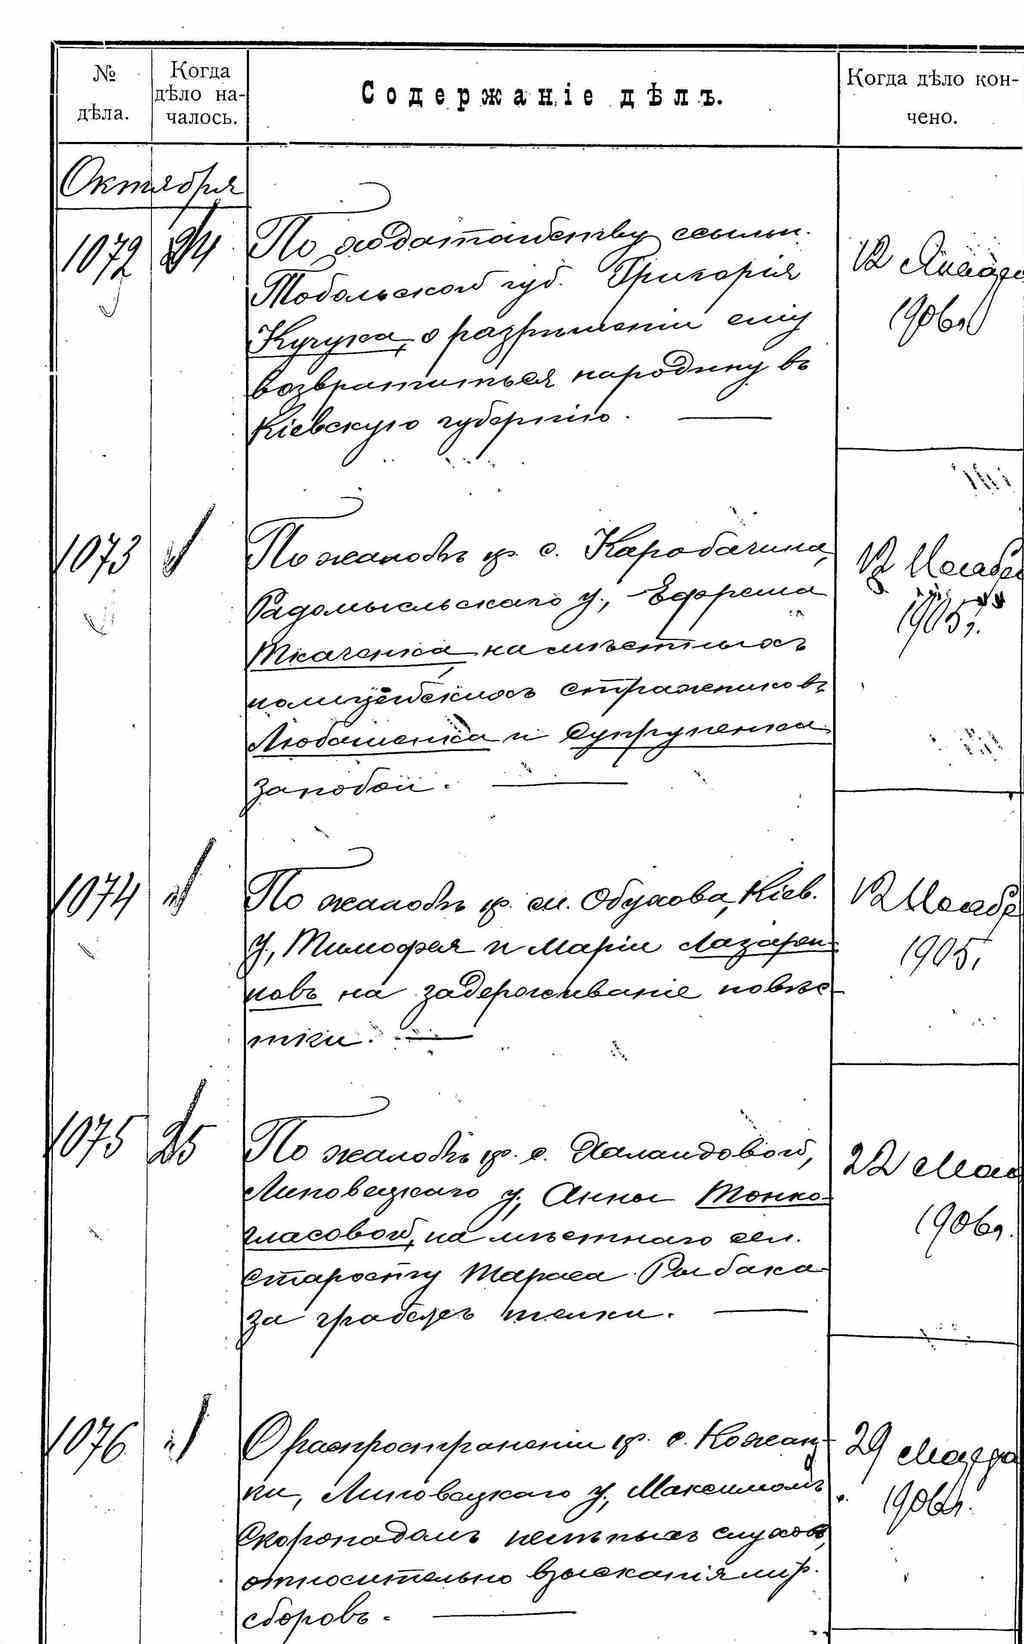 № дѣла.
Когда дѣло началось.
Содержаніе дѣлъ.
Когда дѣло кончено.
Октября
1072 24 По ходатайству ссыльн.
Тобольской губ. Григорія
Кучука, о разрѣшеніи ему
возвратиться на родину въ
Кіевскую губернію.
12 Января
1906 г.
1073 " По жалобѣ кр. с. Каробачина,
Радомысльскаго у., Ефрема
Ткаченка, на мѣстныхъ
полицейскихъ стражниковъ
Любашенка и Супруненка
за побои.
12 Ноябр
1905 г.
1074 " По жалобѣ кр. м. Обухова, Кіев.
у., Тимофея и Маріи Лазарен-
ковъ на задерживаніе повѣс-
тки.
12 Ноябр
1905,
1075 25 По жалобѣ кр. с.
Липовецкаго у., Анны Тонко-
гласовой, на мѣстнаго сел.
старосту Тараса Рыбака
за грабежъ телки.
22 Мая
1906 г.
1076 " О распространеніи кр. с. Кожан-
ки, Липовецкаго у., Максимомъ
Скоропадомъ нелѣпыхъ слуховъ,
относительно взысканія мір.
сборовъ.
29 Марта
1906 г.